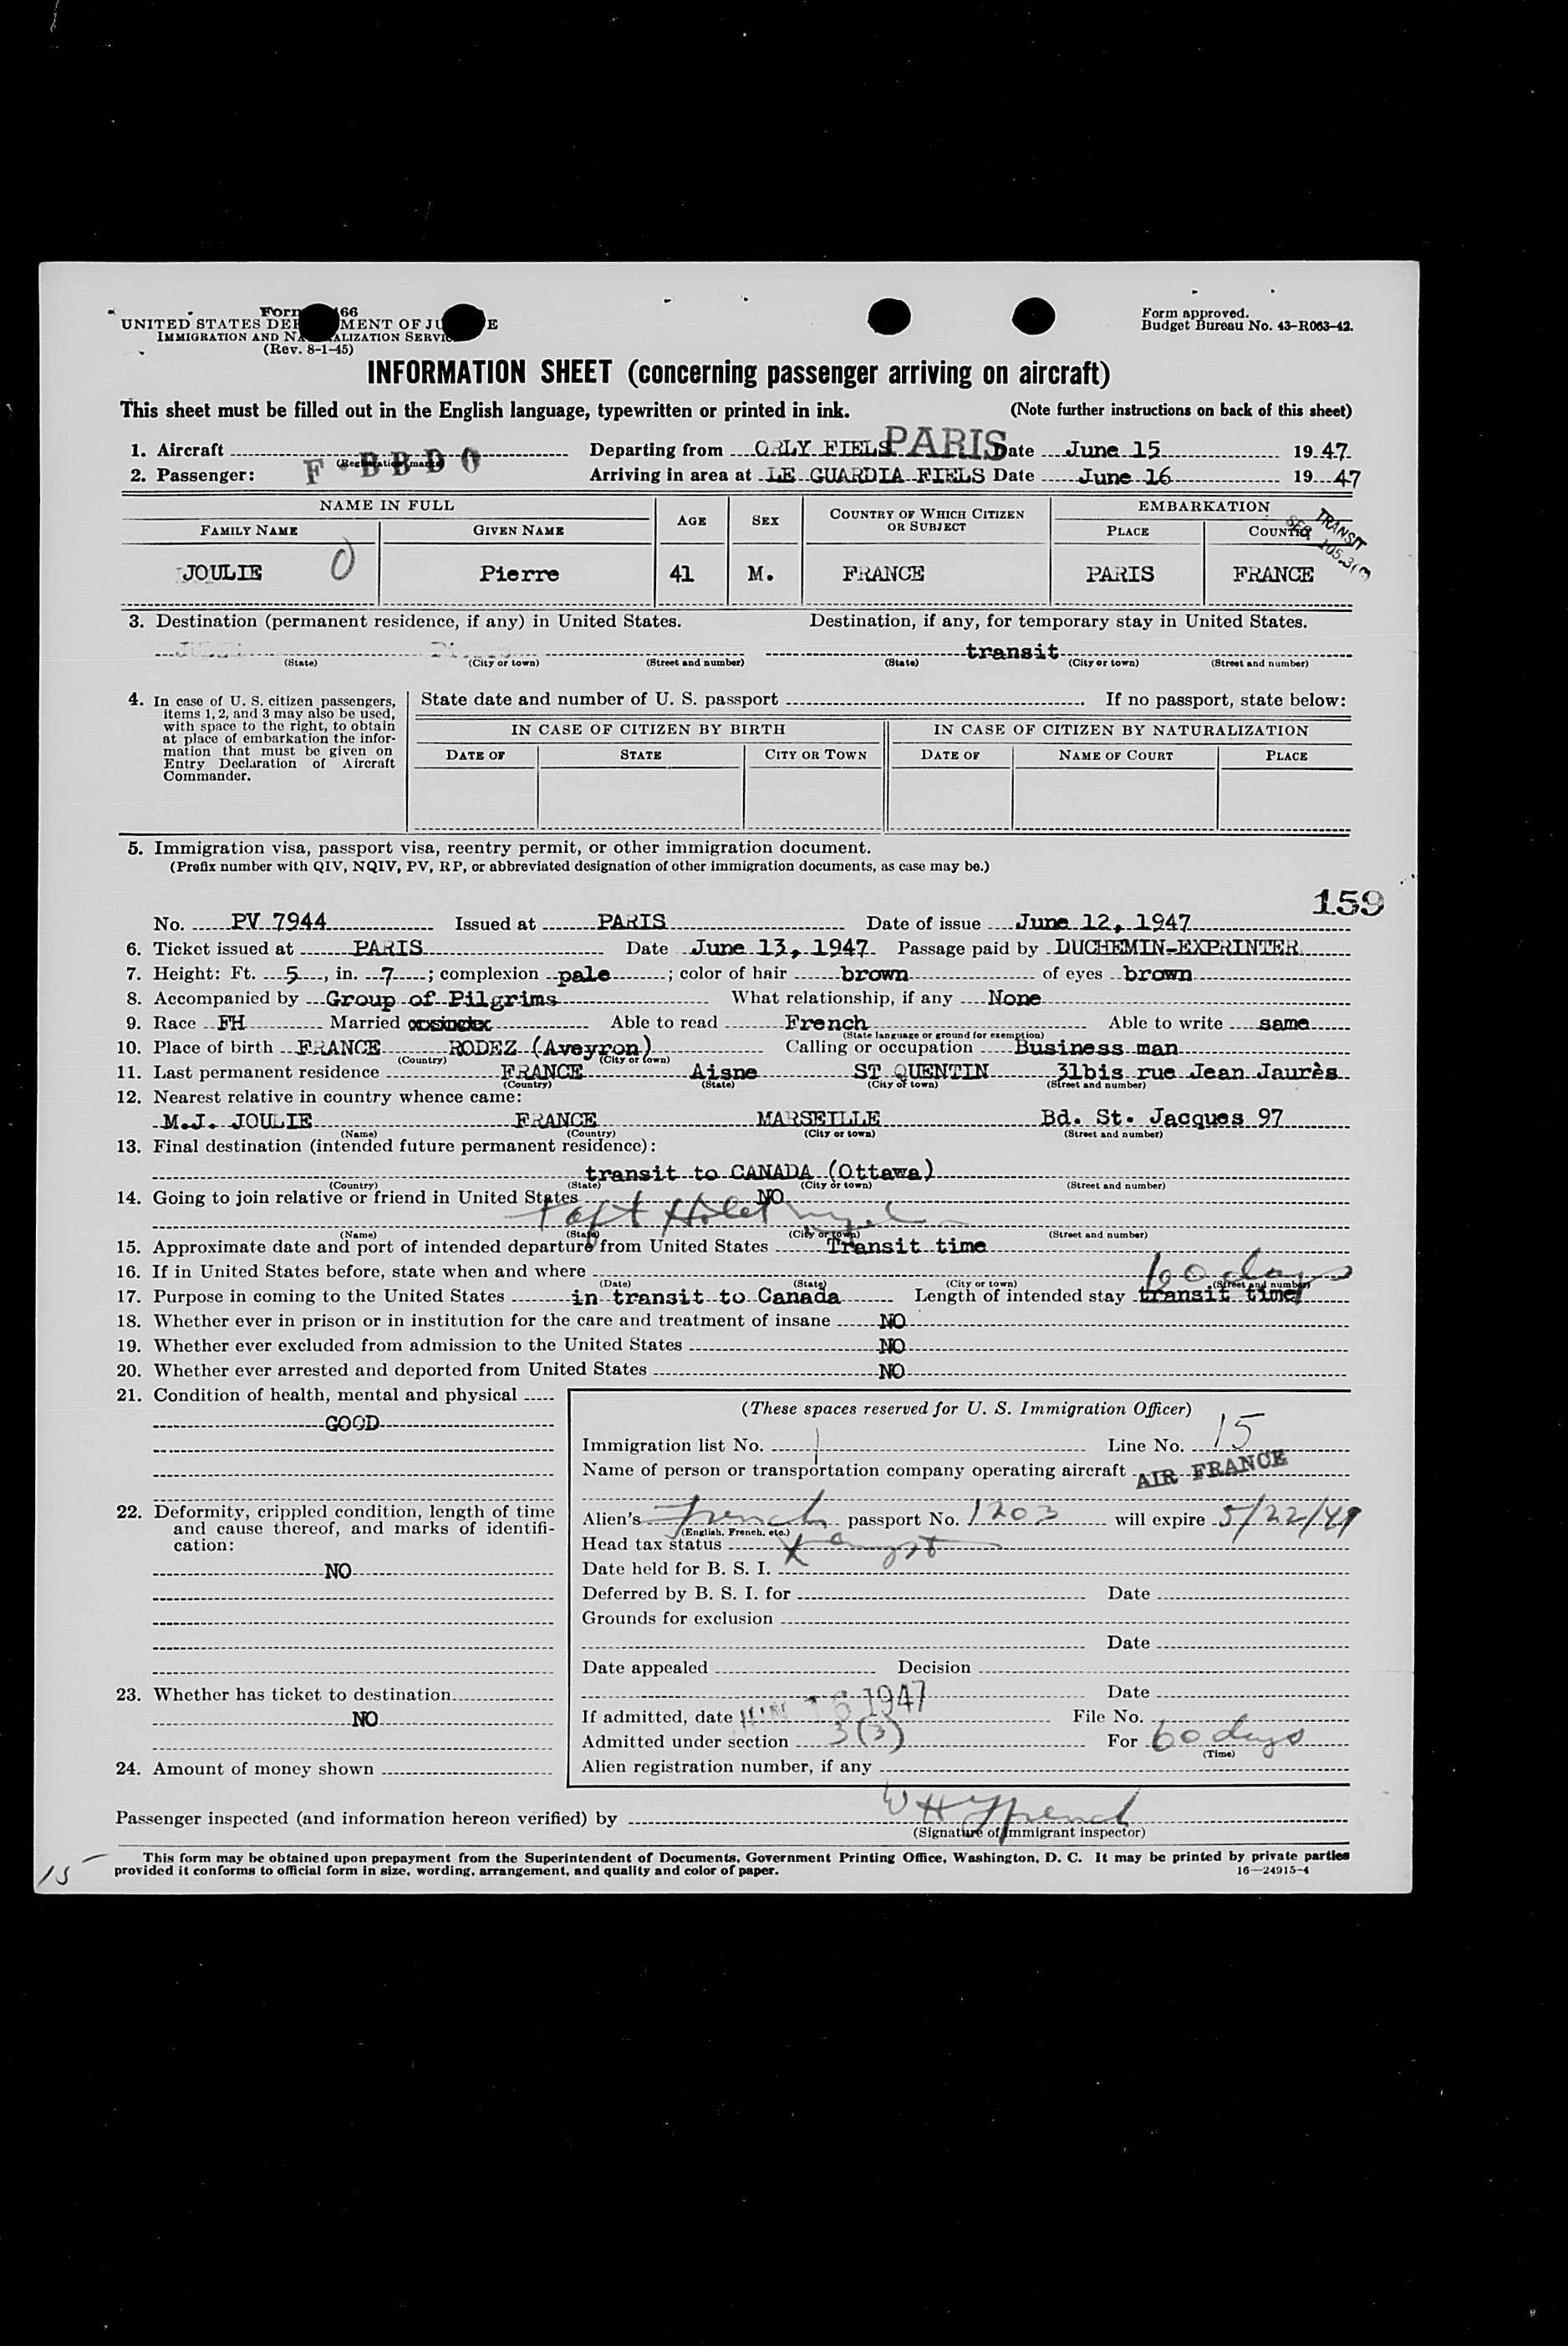 Form 66
UNITED STATES DEP MENT OF JU E
IMMIGRATION AND NA ALIZATION SERVIC
(Rev. 8-1-45)
Form approved.
Budget Bureau No. 43-R063-42.
INFORMATION SHEET (concerning passenger arriving on aircraft)
This sheet must be filled out in the English language, typewritten or printed in ink. (Note further instructions on back of this sheet)
1. Aircraft F-BBDO (Registration marks) Departing from ORLY FIELS PARIS Date June 15 1947
2. Passenger: Arriving in area at LE GUARDIA FIELS Date June 16 1947
NAME IN FULL AGE SEX COUNTRY OF WHICH CITIZEN OR SUBJECT EMBARKATION
FAMILY NAME GIVEN NAME PLACE COUNTRY
TRANSIT
SEC. 105.3(
JOULIE O Pierre 41 M. FRANCE PARIS FRANCE
3. Destination (permanent residence, if any) in United States. Destination, if any, for temporary stay in United States.
transit
(State) (City or town) (Street and number) (State) (City or town) (Street and number)
4. In case of U. S. citizen passengers, items 1, 2, and 3 may also be used, with space to the right, to obtain at place of embarkation the information that must be given on Entry Declaration of Aircraft Commander.
State date and number of U. S. passport If no passport, state below:
IN CASE OF CITIZEN BY BIRTH IN CASE OF CITIZEN BY NATURALIZATION
DATE OF STATE CITY OR TOWN DATE OF NAME OF COURT PLACE
5. Immigration visa, passport visa, reentry permit, or other immigration document.
(Prefix number with QIV, NQIV, PV, RP, or abbreviated designation of other immigration documents, as case may be.)
159
No. PV 7944 Issued at PARIS Date of issue June 12, 1947
6. Ticket issued at PARIS Date June 13, 1947 Passage paid by DUCHEMIN-EXPRINTER
7. Height: Ft. 5, in. 7; complexion pale; color of hair brown of eyes brown
8. Accompanied by Group of Pilgrims What relationship, if any None
9. Race FH Married or single Able to read French Able to write same
(State language or ground for exemption)
10. Place of birth FRANCE RODEZ (Aveyron) Calling or occupation Business man
(Country) (City or town)
11. Last permanent residence FRANCE Aisne ST QUENTIN 31bis rue Jean Jaurès
(Country) (State) (City or town) (Street and number)
12. Nearest relative in country whence came:
M.J. JOULIE FRANCE MARSEILLE Bd. St. Jacques 97
(Name) (Country) (City or town) (Street and number)
13. Final destination (intended future permanent residence):
transit to CANADA (Ottawa)
(Country) (State) (City or town) (Street and number)
14. Going to join relative or friend in United States NO
Taft Hotel
(Name) (State) (City or town) (Street and number)
15. Approximate date and port of intended departure from United States Transit time
16. If in United States before, state when and where
60 days
(Date) (State) (City or town) (Street and number)
17. Purpose in coming to the United States in transit to Canada Length of intended stay transit time
18. Whether ever in prison or in institution for the care and treatment of insane NO
19. Whether ever excluded from admission to the United States NO
20. Whether ever arrested and deported from United States NO
21. Condition of health, mental and physical
GOOD
22. Deformity, crippled condition, length of time and cause thereof, and marks of identification:
NO
23. Whether has ticket to destination
NO
24. Amount of money shown
(These spaces reserved for U. S. Immigration Officer)
Immigration list No. 1 Line No. 15
Name of person or transportation company operating aircraft AIR FRANCE
Alien's French passport No. 1203 will expire 5/22/49
(English, French, etc.)
Head tax status
Date held for B. S. I.
Deferred by B. S. I. for Date
Grounds for exclusion
Date
Date appealed Decision
Date
If admitted, date JUN 16 1947 File No.
Admitted under section 3(3) For 60 days
(Time)
Alien registration number, if any
Passenger inspected (and information hereon verified) by W H French
(Signature of Immigrant inspector)
This form may be obtained upon prepayment from the Superintendent of Documents, Government Printing Office, Washington, D. C. It may be printed by private parties
provided it conforms to official form in size, wording, arrangement, and quality and color of paper. 16—24915-4
15